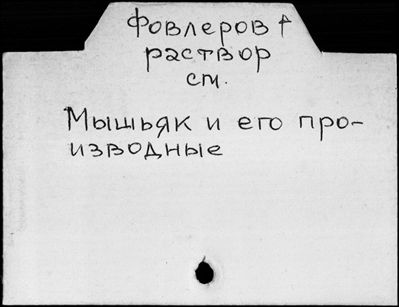 Фовлеров
раствор
см.
Мышьяк и его про-
изводные